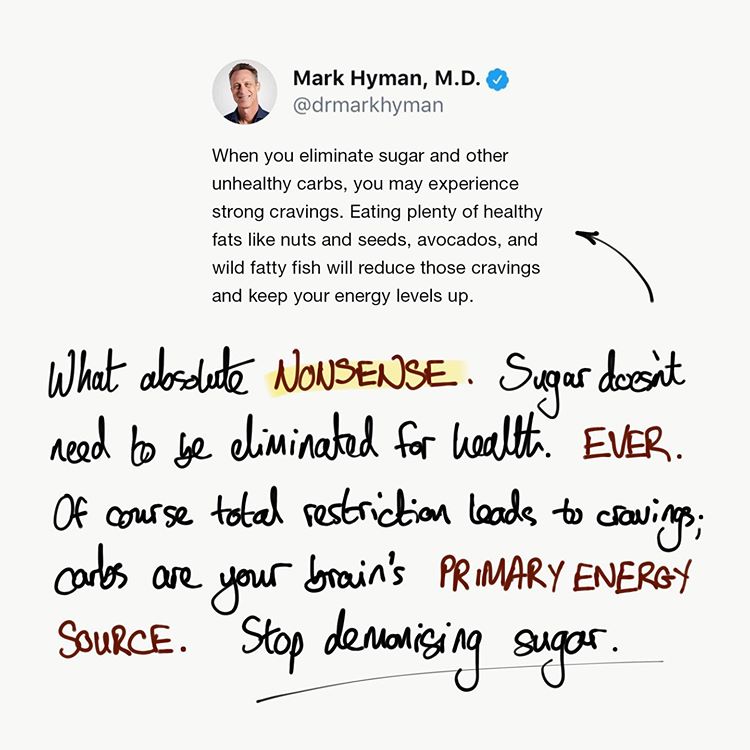 Mark Hyman, M.D.
@drmarkhyman
When you eliminate sugar and other
unhealthy carbs, you may experience
strong cravings. Eating plenty of healthy
fats like nuts and seeds, avocados, and
wild fatty fish will reduce those cravings
and keep your energy levels up.
What absolute NONSENSE. Sugar doesn't
need to be eliminated for health. EVER.
Of course total restriction leads to cravings;
carbs are your brain's PRIMARY ENERGY
SOURCE. Stop demonising sugar.